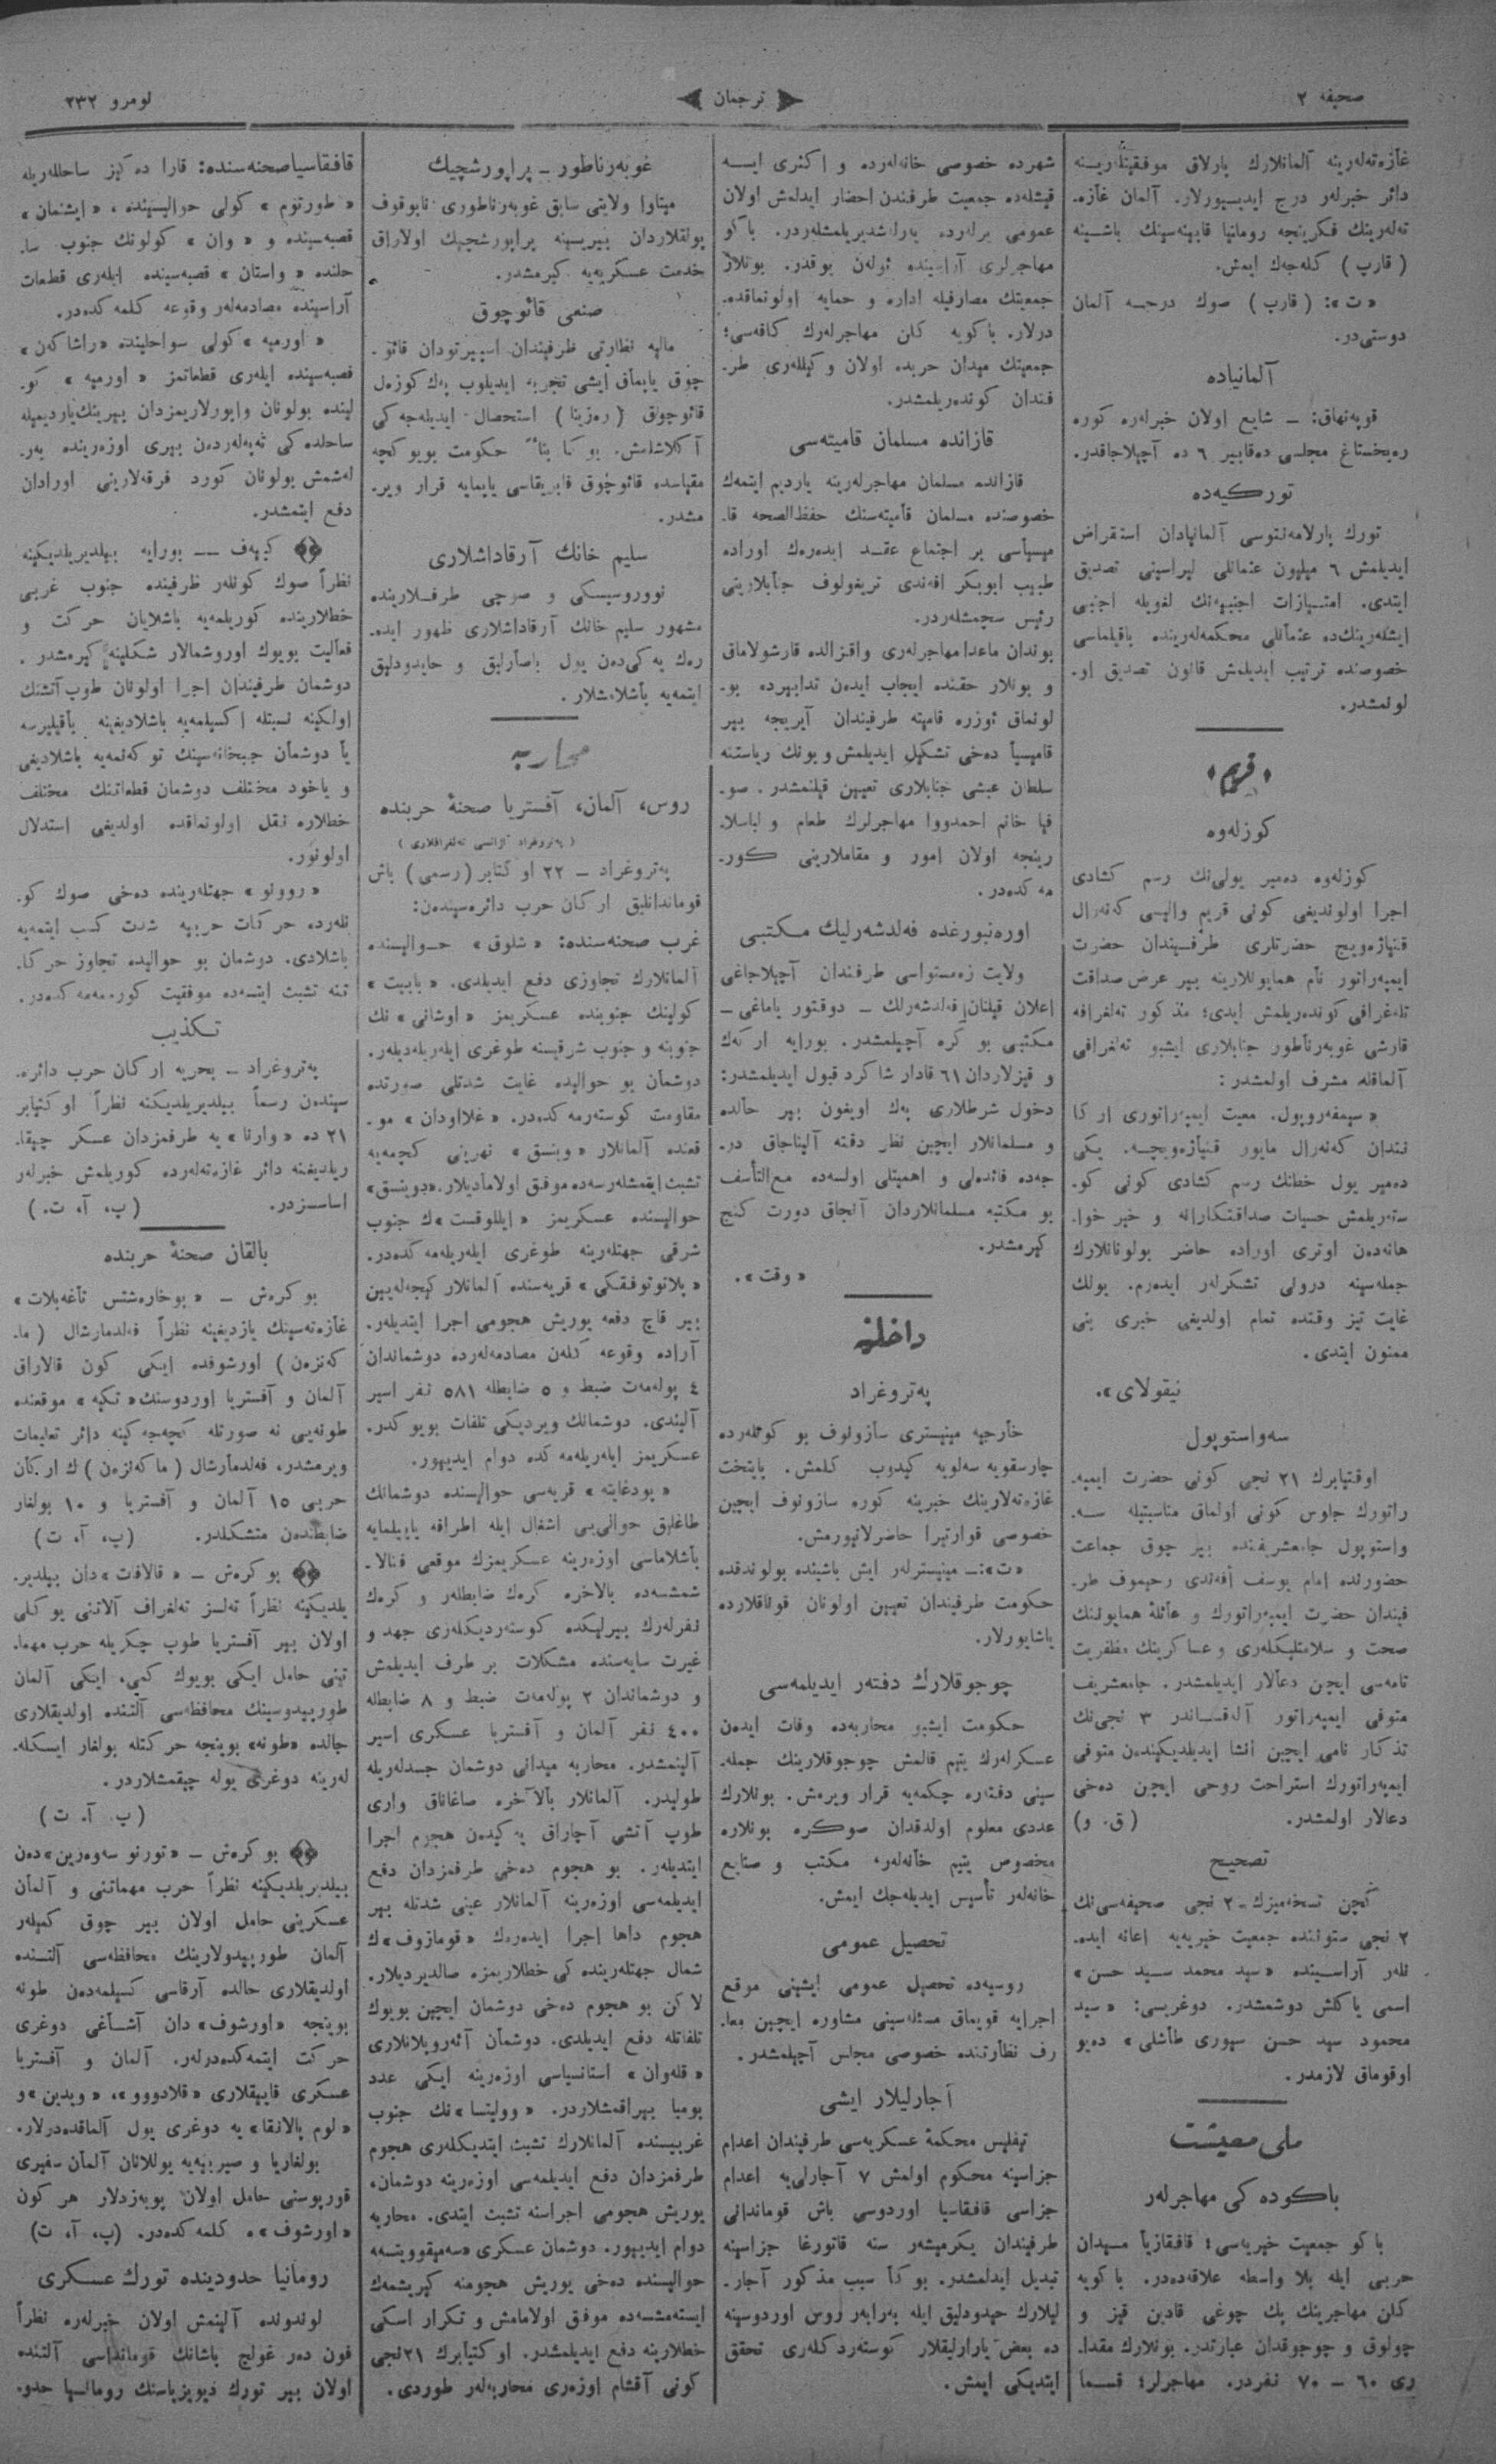 صحیفه ٢
ترجمان
نومرو ٢٣٢
غازه‌ته‌لرینه آلمانلارك پارلاق موفقیتلەرینه
دائر خبرلەر درج ایدییورلار. آلمان غازه‌
ته‌لەرینك فكرینجه رومانیا قابینه‌سینك باشینه
( قارپ ) كله‌جەك ایمش.
« ت »: ( قارپ ) صوك درجه آلمان
دوستی‌در.
آلمانیاده
قوپه‌نهاق: ـ شایع اولان خبرلەره كوره
ره‌یخستاغ مجلسی ده‌قابیر ٦ ده آچیلاجاقدر.
توركیه‌ده
تورك پارلامه‌نتوسی آلمانیادان استقراض
ایدیلمش ٦ میلیون عثمانلی لیراسینی تصدیق
ایتدی. امتیازات اجنبیه‌نك لغویله اجنبی
ایشلەرینك‌ده عثمانلی محكمه‌لەرینده باقیلماسی
خصوصنده ترتیب ایدیلمش قانون تصدیق او-
لونمشدر.
«قریم»
كوزلەوه
كوزلەوه ده‌میر یولی‌نك رسم كشادی
اجرا اولوندیغی كونی قریم والیسی كه‌نه‌رال
قنیاژه‌ویچ حضرتلری طرفیندان حضرت
ایمپه‌راتور نام همایونلارینه بیر عرض صداقت
تلەغرافی كونده‌ریلمش ایدی؛ مذكور ته‌لغرافه
قارشی غوبەرناطور جنابلاری ایشبو ته‌لغرافی
آلماقله مشرف اولمشدر:
« سیمفه‌روپول. معیت ایمپه‌راتوری اركا
نندان كه‌نه‌رال مایور قنیاژه‌ویچه. یكی
ده‌میر یول خطانك رسم كشادی كونی كو-
سته‌ریلمش حسیات صداقتكارانه و خیر خوا-
هانه‌دن اوتری اوراده حاضر بولونانلارك
جمله‌سینه درولی تشكرلەر ایده‌رم. یولك
غایت تیز وقتده تمام اولدیغی خبری بنی
ممنون ایتدی.
نیقولای ».
سه‌واستوپول
اوقتیابرك ٢١ نجی كونی حضرت ایمپه‌
راتورك جلوس كونی اولماق مناسبتیله سه‌
واستوپول جامعشریفنده بیر چوق جماعت
حضورنده امام یوسف افه‌ندی رحیموف طر-
فیندان حضرت ایمپه‌راتورك و عائلهٔ همایوننك
صحت و سلامتلیكلەری و عساكرینك مظفریت
تامه‌سی ایچن دعالار ایدیلمشدر. جامعشریف
متوفی ایمپه‌راتور آلەقساندر ٣ نجی‌نك
تذكار نامی ایچین انشا ایدیلدیكیندەن متوفی
ایمپه‌راتورك استراحت روحی ایچین ده‌خی
دعالار اولمشدر. ( ق. و)
تصحیح
كچن نسخه‌میزك-٢ نجی صحیفه‌سی‌نك
٢ نجی ستوننده جمعیت خیریه‌یه اعانه ایده‌
نلەر آراسینده « سید محمد سید حسن »
اسمی یاكلش دوشمشدر. دوغریسی: « سید
محمود سید حسن سیوری طأشلی » ده‌یو
اوقوماق لازمدر.
ملی معیشت
باكوده كی مهاجرلەر
باكو جمعیت خیریه‌سی؛ قافقازیا میدان
حربی ایله بلا واسطه علاقه‌ده‌در. باكویه
كلن مهاجرینك پك چوغی قادین قیز و
چولوق و چوجوقدان عبارتدر. بونلارك مقدا-
ری ٦٠ – ٧٠ نفردر. مهاجرلر؛ قسما
شهرده خصوصی خانه‌لەرده و اكثری ایسه
قیشله‌ده جمعیت طرفندن احضار ایدلمش اولان
عمومی یرلەرده یەرلەشدیریلمشلەردر. باكو
مهاجرلری آراسینده ئولەن یوقدر. بونلار
جمعیتك مصارفیله اداره و حمایه اولونماقده‌
درلار. باكویه كلن مهاجرلەرك كافه‌سی؛
جمعیتك میدان حربده اولان وكیللەری طر-
فندان كونده‌ریلمشدر.
قازانده مسلمان قامیته‌سی
قازانده مسلمان مهاجرلەرینه یاردیم ایتمەك
خصوصنده مسلمان قامیته‌سنك حفظ‌الصحه قا-
میسیأسی بر اجتماع عقد ایده‌رەك اوراده
طبیب ابوبكر افه‌ندی تریغولوف جنابلارینی
رئیس سچمشلەردر.
بوندان ماعدا مهاجرلەری واقزالده قارشولاماق
و بونلار حقنده ایجاب ایدەن تدابیرده بو-
لونماق ئوزره قامیته طرفیندان آیریجه بیر
قامیسیأ ده‌خی تشكیل ایدیلمش و بونك ریاستنه
سلطان عبشی جنابلاری تعیین قیلنمشدر. صو-
فیا خانم احمدووا مهاجرلرك طعام و لباسلا-
رینجه اولان امور و مقاملارینی كور-
مه كده‌در.
اوره‌نبورغده فه‌لدشه‌رلیك مكتبی
ولایت زه‌مستواسی طرفندان آچیلاجاغی
اعلان قیلنان فه‌لدشه‌رلك – دوقتور یاماغی –
مكتبی بو كره آچیلمشدر. بورایه اركەك
و قیزلاردان ٦١ قادار شاكرد قبول ایدیلمشدر:
دخول شرطلاری پەك اویغون بیر حالده
و مسلمانلار ایچین نظر دقته آلیناجاق در-
جه‌ده فائده‌لی و اهمیتلی اولسه‌ده مع‌التأسف
بو مكتبه مسلمانلاردان آنجاق دورت كنج
كیرمشدر.
« وقت ».
داخلیه
په‌تروغراد
خأرجیه مینیستری سازونوف بو كونلەرده
چارسقویه سه‌لویه كیدوب كلمش. پایتخت
غازه‌ته‌لارینك خبرینه كوره سازونوف ایچین
خصوصی قوارتیرا حاضرلانیورمش.
«ت»:ـ مینیسترلەر ایش باشینده بولوندقده
حكومت طرفیندان تعیین اولونان قوناقلارده
یاشایورلار.
چوجوقلارك دفتەر ایدیلمه‌سی
حكومت ایشبو محاربه‌ده وفات ایدەن
عسكرلەرك یتیم قالمش چوجوقلارینك جمله‌
سینی دفتەره چكمه‌یه قرار ویرمش. بونلارك
عددی معلوم اولدقدان صوكره بونلاره
مخصوص یتیم خأنه‌لەر، مكتب و صنایع
خانه‌لەر تأسیس ایدیلەجك ایمش.
تحصیل عمومی
روسیه‌ده تحصیل عمومی ایشینی موقع
اجرایه قویماق مسئله‌سینی مشاوره ایچین معا-
رف نظأرتنده خصوصی مجلس آچیلمشدر.
آجارلیلار ایشی
تیفلیس محكمهٔ عسكریه‌سی طرفیندان اعدام
جزاسینه محكوم اولمش ٧ آجارلی‌یه اعدام
جزاسی قافقاسیا اوردوسی باش قوماندانی
طرفیندان یكرمیشەر سنه قاتورغا جزاسینه
تبدیل ایدلمشدر. بوكأ سبب مذكور آجار-
لیلارك حیدودلیق ایله به‌رابەر روس اوردوسینه
ده بعض یارارلیقلار كوسته‌ردكلەری تحقق
ایتدیكی ایمش.
غوبەرناطور ـ پراپورشچیك
میتاوا ولایتی سابق غوبەرناطوری نابوقوف
پولقلاردان بیریسینه پراپورشچیك اولاراق
خدمت عسكریه‌یه كیرمشدر.
صنعی قائوچوق
مالیه نظارتی طرفیندان اسپیرتودان قائو-
چوق یاپمأق ایشی تجربه ایدیلوب پەك كوزەل
قائوچوق (ره‌زینا) استحصال ایدیلەجه‌كی
آكلاشلمش. بوكا بناءً حكومت بویوكجه
مقیاسده قائوچوق فابریقاسی یاپمایه قرار ویر-
مشدر.
سلیم خانك آرقاداشلاری
نووروسیسكی و صوچی طرفلارینده
مشهور سلیم خانك آرقاداشلاری ظهور ایده‌
رەك یه كی‌دەن یول باصأرلیق و حایدودلیق
ایتمه‌یه بأشلامشلار.
محاربه
روس، آلمان، آفستریا صحنهٔ حربنده
( په‌تروغراد آژانسی ته‌لغرافلاری )
په‌تروغراد – ٢٢ اوكتابر (رسمی) باش
قوماندانلیق اركان حرب دائره‌سیندەن:
غرب صحنه‌سنده: «شلوق» حوالیسنده
آلمانلارك تجاوزی دفع ایدیلدی. « بابیت »
كولینك جنوبنده عسكریمز « اوشانی » نك
جنوبنه و جنوب شرقیسنه طوغری ایلەریله‌دیلەر.
دوشمأن بو حوالیده غایت شدتلی صورتده
مقاومت كوسته‌رمه كده‌در. « غلااودان » مو-
قعنده آلمانلار « وینسق » نهرینی كچمه‌یه
تشبث ایتمشلەرسه‌ده موفق اولامادیلار. «دوینسق»
حوالیسنده عسكریمز « ایللوقست »ك جنوب
شرقی جهتلەرینه طوغری ایلەریلەمه كده‌در.
« پلاتونوفقكی » قریه‌سنده آلمانلار كیجه‌لەیین
بیر قاچ دفعه یوریش هجومی اجرا ایتدیلەر.
آراده وقوعه كلەن مصادمه‌لەرده دوشماندان
٤ پولەمه‌ت ضبط و ٥ ضابطله ٥٨١ نفر اسیر
آلیندی. دوشمانك ویردیكی تلفات بویوكدر.
عسكریمز ایلەریلەمه كده دوام ایدییور.
« بودغاینه » قریه‌سی حوالیسنده دوشمانك
طاغلیق حوالی‌یی اشغال ایله اطرافه یاییلمایه
بأشلاماسی اوزەرینه عسكریمزك موقعی فنالا-
شمشسه‌ده بالاخره كرەك ضابطلەر و كرەك
نفرلەرك بیرلیكده كوسته‌ردیكلەری جهد و
غیرت سایه‌سنده مشكلات بر طرف ایدیلمش
و دوشماندان ٢ پولەمه‌ت ضبط و ٨ ضابطله
٤٠٠ نفر آلمان و آفستریا عسكری اسیر
آلینمشدر. محاربه میدانی دوشمان جسدلەریله
طولیدر. آلمانلار بألآخره صاغاناق واری
طوپ آتشی آچاراق یه كیدەن هجوم اجرا
ایتدیلەر. بو هجوم ده‌خی طرفمزدان دفع
ایدیلمه‌سی اوزەرینه آلمانلار عینی شدتله بیر
هجوم داها اجرا ایده‌رەك « قومازوف »ك
شمال جهتلەرینده كی خطلاریمزه صالدیردیلار.
لاكن بو هجوم ده‌خی دوشمان ایچین بویوك
تلفاتله دفع ایدیلدی. دوشمأن آئه‌روپلانلاری
« قلەوان » استانسیاسی اوزەرینه ایكی عدد
بومبا بیراقمشلاردر. « وولیتسا » نك جنوب
غربیسنده آلمانلارك تشبث ایتدیكلەری هجوم
طرفمزدان دفع ایدیلمه‌سی اوزەرینه دوشمان،
یوریش هجومی اجراسنه تشبث ایتدی. محاربه
دوام ایدییور. دوشمان عسكری «سه‌میقوویتسه»
حوالیسنده ده‌خی یوریش هجومنه كیریشمەك
ایسته‌مشسه‌ده موفق اولامامش و تكرار اسكی
خطلارینه دفع ایدیلمشدر. اوكتیأبرك ٢١نجی
كونی آقشام اوزەری محاربه‌لەر طوردی.
قافقاسیا صحنه‌سنده: قارا ده كیز ساحللەریله
« طورتوم » كولی حوالیسینده، « ایشخان »
قصبه‌سینده و « وان » كولونك جنوب سا-
حلنده « واستان » قصبه‌سینده ایلەری قطعات
آراسینده مصادمه‌لەر وقوعه كلمه كده‌در.
« اورمیه » كولی سواحلینده « راشاكەن »
قصبه‌سینده ایلەری قطعاتمز « اورمیه » كو-
لینده بولونان واپورلاریمزدان بیرینك یاردیمیله
ساحلده كی تپه‌لەردەن بیری اوزەرینده یەر-
لەشمش بولونان كورد فرقه‌لارینی اورادان
دفع ایتمشدر.
كیه‌ف –– بورایه بیلدیریلدیكینه
نظراً صوك كونلەر ظرفینده جنوب غربی
خطلارینده كوریلمه‌یه باشلایان حركت و
فعالیت بویوك اوروشمالار شكلینه كیرمشدر.
دوشمان طرفیندان اجرا اولونان طوپ آتشنك
اولكینه نسبتله اكسیلمه‌یه باشلادیغینه باقیلیرسه
یا دوشمان جبخانه‌سینك توكه‌نمه‌یه باشلادیغی
و یاخود مختلف دوشمان قطعاتنك مختلف
خطلاره نقل اولونماقده اولدیغی استدلال
اولونور.
« روونو » جهتلەرینده ده‌خی صوك كو-
نلەرده حركات حربیه شدت كسب ایتمه‌یه
باشلادی. دوشمان بو حوالیده تجاوز حركا-
تنه تشبث ایتسه‌ده موفقیت كورمه‌مه كده‌در.
تكذیب
په‌تروغراد – بحریه اركان حرب دائره‌
سیندەن رسماً بیلدیریلدیكنه نظراً اوكتیابر
٢١ ده « وارنا » یه طرفمزدان عسكر چیقا-
ریلدیغینه دائر غازه‌ته‌لەرده كوریلمش خبرلەر
اساسسزدر. (پ، آ، ت.)
بالقان صحنهٔ حربنده
بوكرەش – « بوخاره‌شتس تأغه‌بلات »
غازه‌ته‌سینك یازدیغینه نظراً فه‌لدمارشال ( ما-
كه‌نزەن ) اورشوفده ایكی كون قالاراق
آلمان و آفستریا اوردوسنك « تكیه » موقعنده
طونه‌یی نه صورتله كچه‌جه كینه دائر تعلیمات
ویرمشدر، فه‌لدمأرشال ( ماكه‌نزەن ) ك اركأن
حربی ١٥ آلمان و آفستریا و ١٠ بولغار
ضابطندەن متشكلدر. (پ، آ، ت)
بوكرەش – « قالافات » دان بیلدیر-
یلدیكینه نظراً ته‌لسز ته‌لغراف آلاتنی یوكلی
اولان بیر آفستریا طوپ چكریله حرب مهما-
تینی حامل ایكی بویوك كمی، ایكی آلمان
طورپیدوسینك محافظه‌سی آلتنده اولدیقلاری
حالده «طونه» بوینجه حركتله بولغار ایسكله‌
لەرینه دوغری یوله چیقمشلاردر.
(پ آ. ت)
بوكرەش – «تورنو سه‌وەرین»دەن
بیلدیریلدیكینه نظراً حرب مهماتنی و آلمأن
عسكرینی حامل اولان بیر چوق كمیلەر
آلمان طورپیدولارینك محافظه‌سی آلتنده
اولدیقلاری حالده آرقاسی كسیلمه‌دەن طونه
بوینجه «اورشوف» دان آشأغی دوغری
حركت ایتمه كده‌درلەر. آلمان و آفستریا
عسكری قاییقلاری « قلادووو »، « ویدین » و
« لوم پالانقا » یه دوغری یول آلماقده‌درلار.
بولغاریا و صیربیه‌یه یوللانان آلمأن سفیری
قورپوسنی حامل اولان پویه‌زدلار هر كون
« اورشوف »ه كلمه كده‌در. (پ، آ، ت)
رومانیا حدودینده تورك عسكری
لوندونده آلینمش اولان خبرلەره نظراً
فون دەر غولچ پاشانك قومانداسی آلتنده
اولان بیر تورك دیویزیاسنك رومانیا حدو-